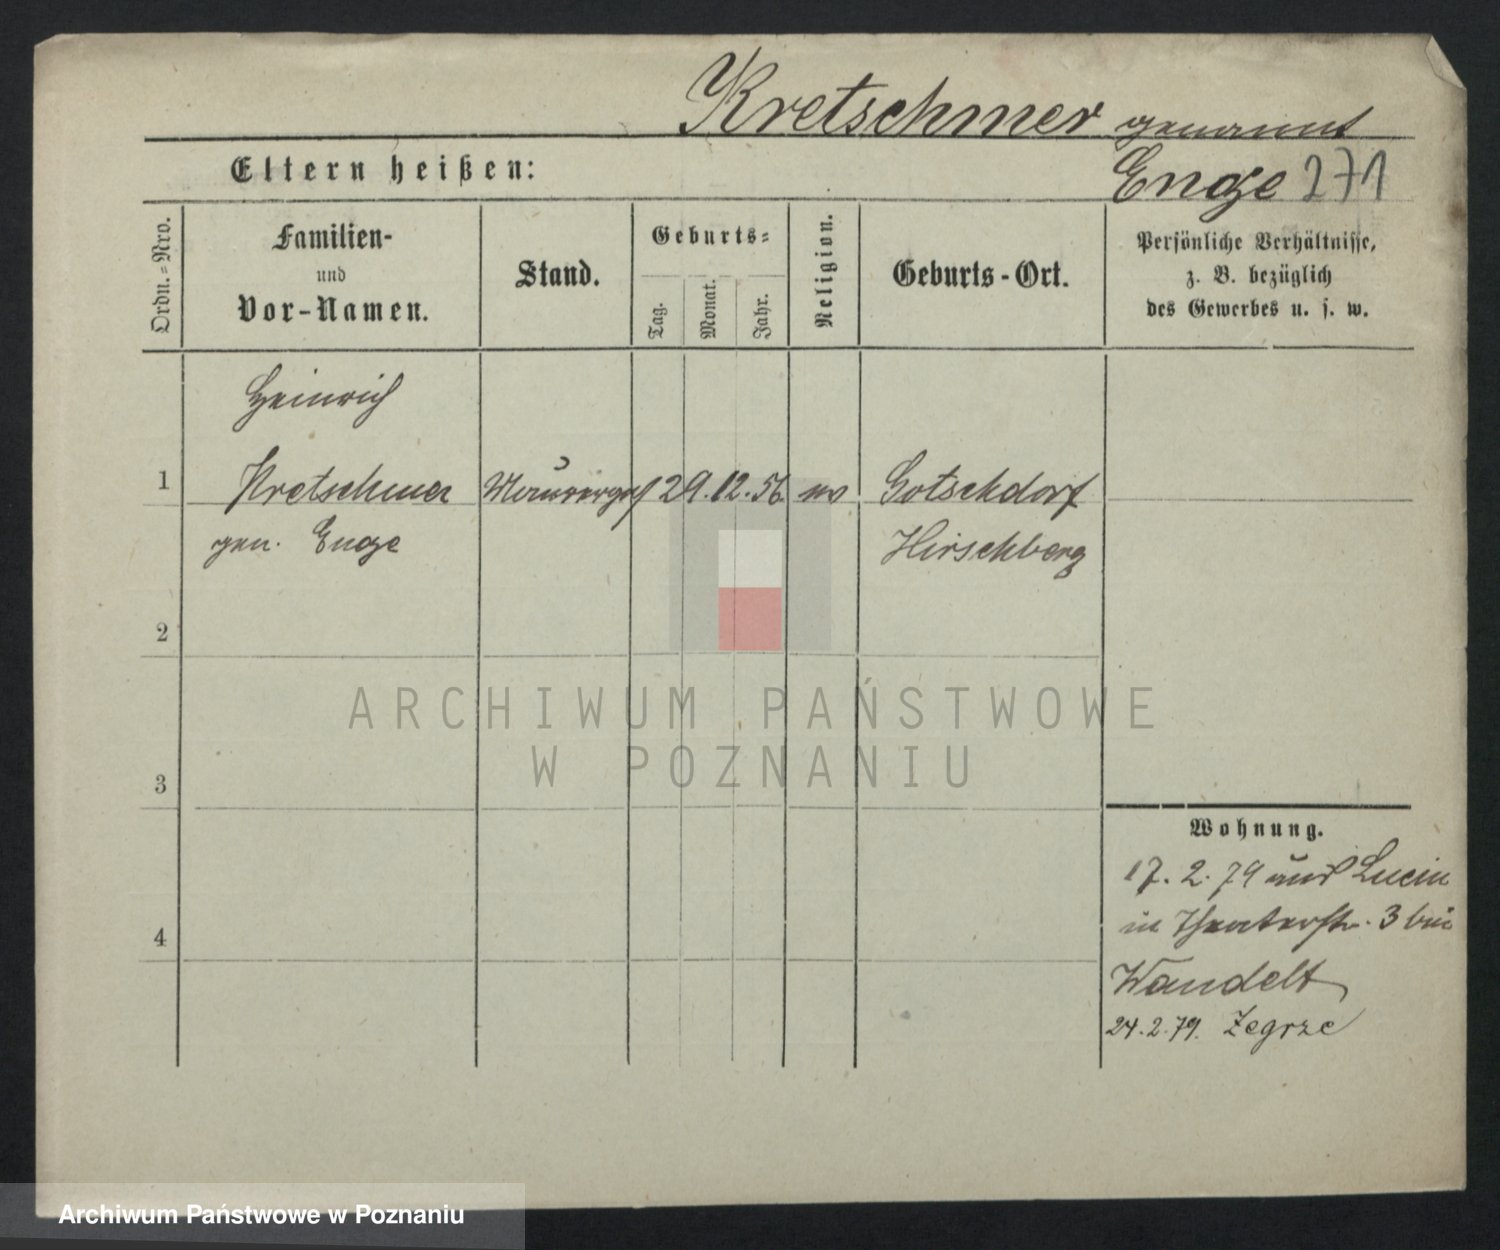 Kretschmer genannt
Enge 271
Eltern heißen:
Ordn.=Nro.
Familien-
und
Vor-Namen.
Stand.
Geburts=
Tag.
Monat.
Jahr.
Religion.
Geburts-Ort.
Persönliche Verhältnisse,
z. B. bezüglich
des Gewerbes u. s. w.
Heinrich
1 Kretschmer Maurerges 29. 12. 56 ev Gotschdorf
gen. Enge Hirschberg
2
3
4
Wohnung.
17. 2. 79 aus Lucin
in Theaterstr. 3 bei
Wandelt
24. 2. 79. Zegrze
ARCHIWUM PAŃSTWOWE
W POZNANIU
Archiwum Państwowe w Poznaniu